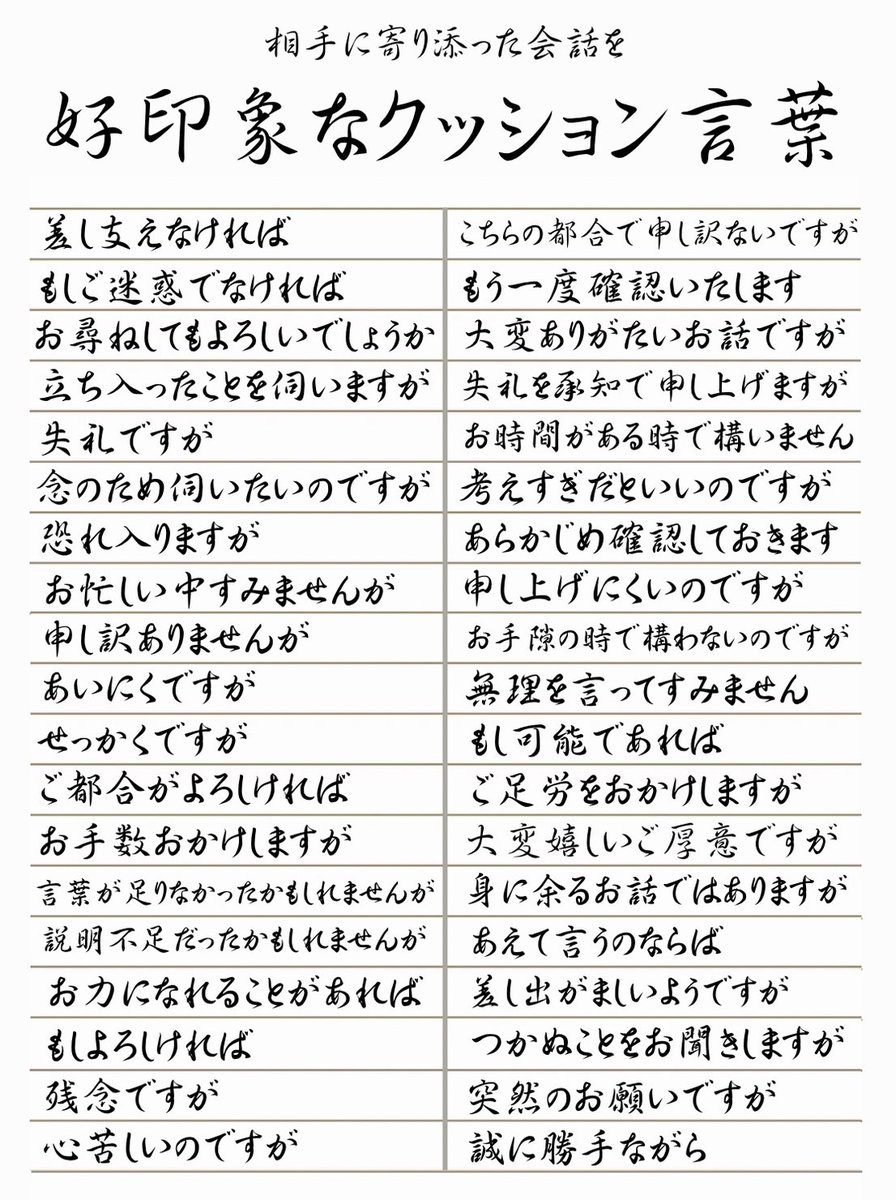 相手に寄り添った会話を
好印象なクッション言葉
差し支えなければ
もしご迷惑でなければ
お尋ねしてもよろしいでしょうか
立ち入ったことを伺いますが
失礼ですが
念のため伺いたいのですが
恐れ入りますが
お忙しい中すみませんが
申し訳ありませんが
あいにくですが
せっかくですが
ご都合がよろしければ
お手数おかけしますが
言葉が足りなかったかもしれませんが
説明不足だったかもしれませんが
お力になれることがあれば
もしよろしければ
残念ですが
心苦しいのですが
こちらの都合で申し訳ないですが
もう一度確認いたします
大変ありがたいお話ですが
失礼を承知で申し上げますが
お時間がある時で構いません
考えすぎだといいのですが
あらかじめ確認しておきます
申し上げにくいのですが
お手隙の時で構わないのですが
無理を言ってすみません
もし可能であれば
ご足労をおかけしますが
大変嬉しいご厚意ですが
身に余るお話ではありますが
あえて言うのならば
差し出がましいようですが
つかぬことをお聞きしますが
突然のお願いですが
誠に勝手ながら